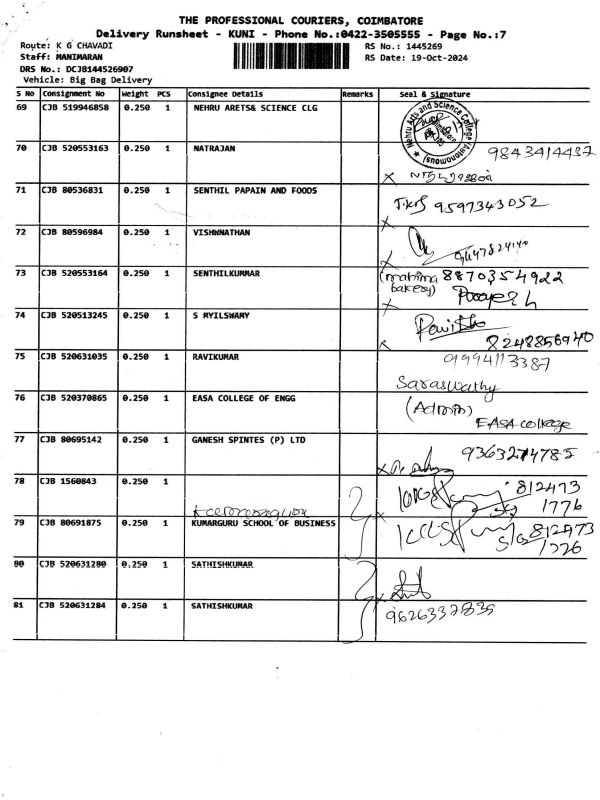 THE PROFESSIONAL COURIERS, COIMBATORE
Delivery Runsheet - KUNI - Phone No.:0422-3505555 - Page No.:7
Route: K G CHAVADI
RS No.: 1445269
Staff: MANIMARAN
RS Date: 19-Oct-2024
DRS No.: DCJB144526907
Vehicle: Big Bag Delivery
S No Consignment No Weight PCS Consignee Details Remarks Seal & Signature
69 CJB 519946858 0.250 1 NEHRU ARETS& SCIENCE CLG
Nehru Arts and Science College (Autonomous)
70 CJB 520553163 0.250 1 NATRAJAN
9843414437
71 CJB 80536831 0.250 1 SENTHIL PAPAIN AND FOODS
9597343052
72 CJB 80596984 0.250 1 VISHWNATHAN
73 CJB 520553164 0.250 1 SENTHILKUMMAR
(mahima bakery) 8870354922
74 CJB 520513245 0.250 1 S MYILSWAMY
8248856940
75 CJB 520631035 0.250 1 RAVIKUMAR
91994113387
Saraswathy
76 CJB 520370865 0.250 1 EASA COLLEGE OF ENGG
(Admin)
EASA college
77 CJB 80695142 0.250 1 GANESH SPINTES (P) LTD
9363274785
78 CJB 1560843 0.250 1
812473
1776
79 CJB 80691875 0.250 1 KUMARGURU SCHOOL OF BUSINESS
812473
1776
80 CJB 520631280 0.250 1 SATHISHKUMAR
81 CJB 520631284 0.250 1 SATHISHKUMAR